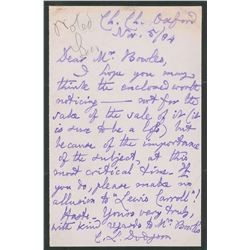 Noted
Ch. Ch. Oxford
Nov. 5/94
Dear Mr Bowles,
I hope you may
think the enclosed worth
noticing — not for the
sake of the sale of it (it
is sure to be a loss) but
because of the importance
of the subject, at this
most critical time. If
you do, please make no
allusion to "Lewis Carroll"!
Haste. Yours very truly,
with kind regards to Mrs Bowles
C. L. Dodgson